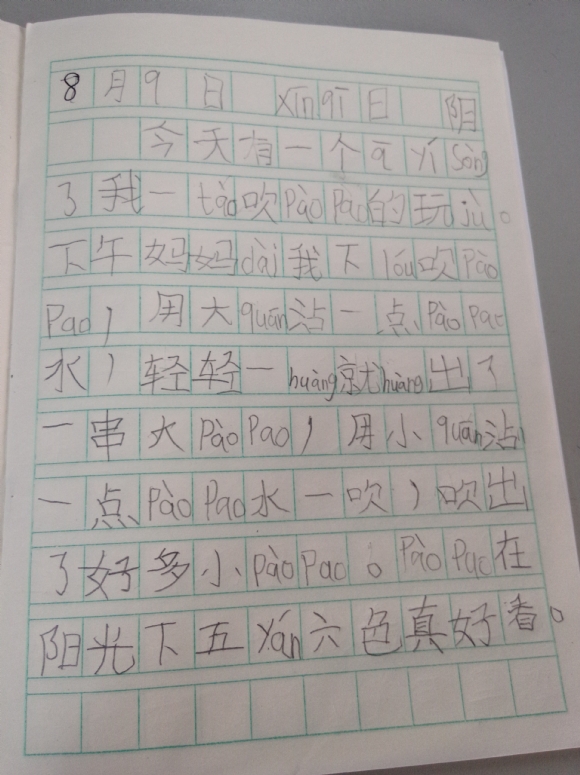 8月9日 xīnqī日 阴
今天有一个ā yí sòng
了我一tào吹Pào Pào的玩jù。
下午妈妈dài我下lóu吹Pào
Pao，用大quān沾一点Pào Pao
水，轻轻一huàng就huàng出了
一串大Pào Pao，用小quān沾
一点Pào Pao水一吹，吹出
了好多小Pào Pao。Pào Pao在
阳光下五Yán六色真好看。